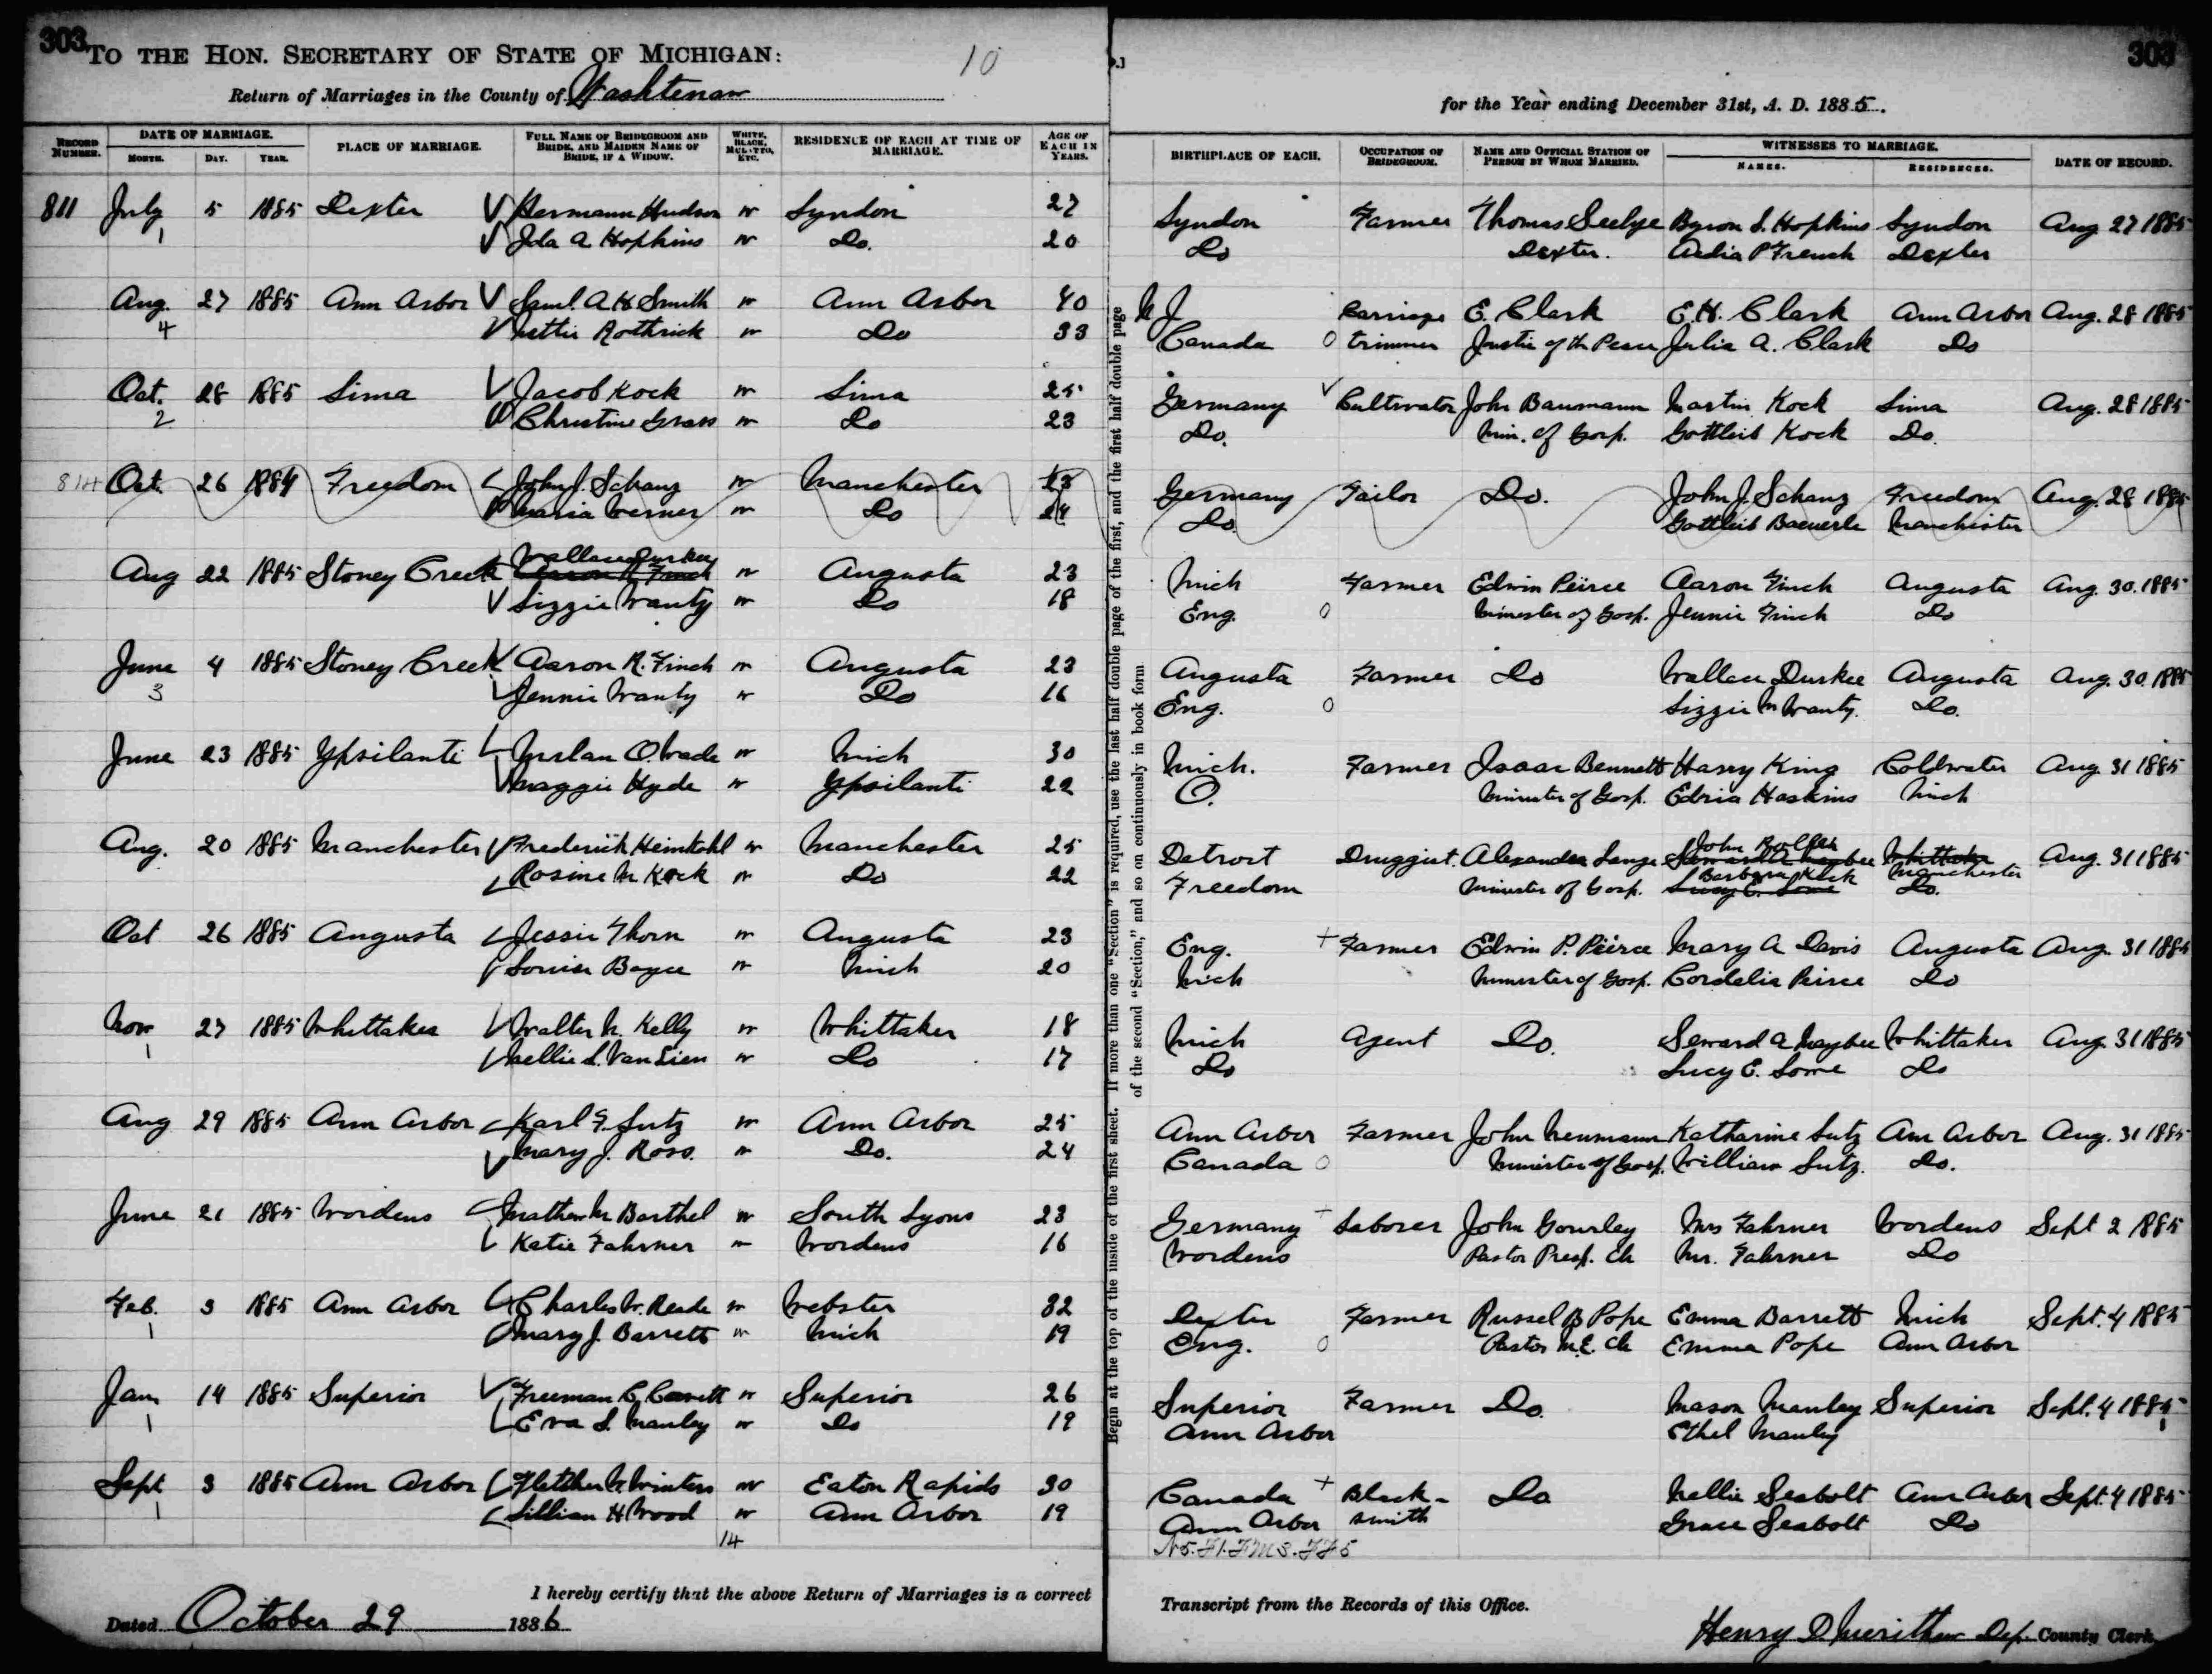 303
TO THE HON. SECRETARY OF STATE OF MICHIGAN:
10
Return of Marriages in the County of Washtenaw
RECORD NUMBER.
DATE OF MARRIAGE.
MONTH. DAY. YEAR.
PLACE OF MARRIAGE.
FULL NAME OF BRIDEGROOM AND BRIDE, AND MAIDEN NAME OF BRIDE, IF A WIDOW.
WHITE, BLACK, MULATTO, ETC.
RESIDENCE OF EACH AT TIME OF MARRIAGE.
AGE OF EACH IN YEARS.
811 July 5 1885 Dexter Hermann Hudson w Lyndon 27
1 Ida A Hopkins w Do. 20
Aug. 27 1885 Ann Arbor Saml. A. H. Smith w Ann Arbor 40
4 Nettie Rothrick w Do 33
Oct. 28 1885 Lima Jacob Kock w Lima 25
2 Christine Grass w Do 23
814 Oct. 26 1884 Freedom John J. Schanz w Manchester
Maria Werner w Do 24
Aug 22 1885 Stoney Creek Wallace Durkey Aaron R. Finch w Augusta 23
Lizzie Wanty w Do 18
June 4 1885 Stoney Creek Aaron R. Finch w Augusta 23
3 Jennie Wanty w Do 16
June 23 1885 Ypsilanti O. Wade w Mich 30
Maggie Hyde w Ypsilanti 22
Aug. 20 1885 Manchester Frederick Heimkohl w Manchester 25
Rosine M. Kock w Do 22
Oct 26 1885 Augusta Jessie Thorn w Augusta 23
Louisa Boyce w Mich 20
Nov 27 1885 Whittaker Walter N. Kelly w Whittaker 18
1 Nellie L. Van Sien w Do 17
Aug 29 1885 Ann Arbor Karl F. Lutz w Ann Arbor 25
Mary J. Ross. w Do. 24
June 21 1885 Wordens Mathew M Barthel w South Lyons 23
Katie Fahrner w Wordens 16
Feb. 3 1885 Ann Arbor Charles W. Reade w Webster 32
1 Mary J. Barrett w Mich 19
Jan 14 1885 Superior Freeman C. w Superior 26
1 Eva L. Manley w Do 19
Sept 3 1885 Ann Arbor Fletcher W. Winters w Eaton Rapids 30
1 Lillian H Wood w Ann Arbor 19
14
I hereby certify that the above Return of Marriages is a correct
Dated October 29 1886
Begin at the top of the inside of the first sheet. If more than one "Section" is required, use the last half double page of the first, and the first half double page
of the second "Section," and so on continuously in book form
303
for the Year ending December 31st, A. D. 1885.
BIRTHPLACE OF EACH.
OCCUPATION OF BRIDEGROOM.
NAME AND OFFICIAL STATION OF PERSON BY WHOM MARRIED.
WITNESSES TO MARRIAGE.
NAMES. RESIDENCES.
DATE OF RECORD.
Lyndon Farmer Thomas Seelye Byron S. Hopkins Lyndon Aug 27 1885
Do Dexter. P French Dexter
N J Carriage E. Clark E.H. Clark Ann Arbor Aug. 28 1885
Canada 0 trimmer Justice of the Peace Julia A. Clark Do
Germany Cultivator John Baumann Martin Kock Lima Aug. 28 1885
Do. Min. of Gosp. Gottleib Kock Do.
Germany Tailor Do. John J. Schanz Freedom Aug. 28 1885
Do. Gottleib Baeuerle Manchester
Mich Farmer Edwin Peirce Aaron Finch Augusta Aug. 30. 1885
Eng. 0 Minister of Gosp. Jennie Finch Do
Augusta Farmer Do Wallace Durkee Augusta Aug. 30. 1885
Eng. 0 Lizzie M Wanty. Do.
Mich. Farmer Isaac Bennett Harry King Coldwater Aug 31 1885
O. Minister of Gosp. Edria Haskins Mich
Detroit Druggist. Alexander Lange John Seward A Maybee Whittaker Aug. 31 1885
Freedom Minister of Gosp. Barbara Kock Lucy E. Lome Manchester Do.
Eng. + Farmer Edwin P. Peirce Mary A Davis Augusta Aug. 31 1885
Mich Minister of Gosp. Cordelia Peirce Do
Mich Agent Do. Seward A Maybee Whittaker Aug. 31 1885
Do Lucy E. Lome Do
Ann Arbor Farmer John Neumann Katharine Lutz Ann Arbor Aug. 31 1885
Canada 0 Minister of Gosp. William Lutz. Do.
Germany + Laborer John Gourley Mrs Fahrner Wordens Sept 2 1885
Wordens Pastor Presp. Ch Mr. Fahrner Do
Dexter Farmer Russel B Pope Emma Barrett Mich Sept. 4 1885
Eng. 0 Pastor M.E. Ch Emma Pope Ann Arbor
Superior Farmer Do. Mason Manley Superior Sept. 4 1885
Ann Arbor Ethel Manley
Canada + Black- Do Nellie Seabolt Ann Arbor Sept. 4 1885
Ann Arbor smith Grace Seabolt Do
N5. F1. FM3. FF5
Transcript from the Records of this Office.
Henry D Merithew Dep. County Clerk